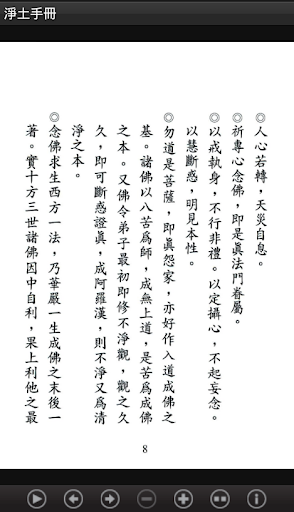 淨土手冊
◎人心若轉，天災自息。
◎祈專心念佛，即是眞法門眷屬。
◎以戒執身，不行非禮。以定攝心，不起妄念。
以慧斷惑，明見本性。
◎勿道是菩薩，即眞怨家，亦好作入道成佛之
基。諸佛以八苦爲師，成無上道，是苦爲成佛
之本。又佛令弟子最初即修不淨觀，觀之久
久，即可斷惑證眞，成阿羅漢，則不淨又爲清
淨之本。
◎念佛求生西方一法，乃華嚴一生成佛之末後一
著。實十方三世諸佛因中自利，果上利他之最
8